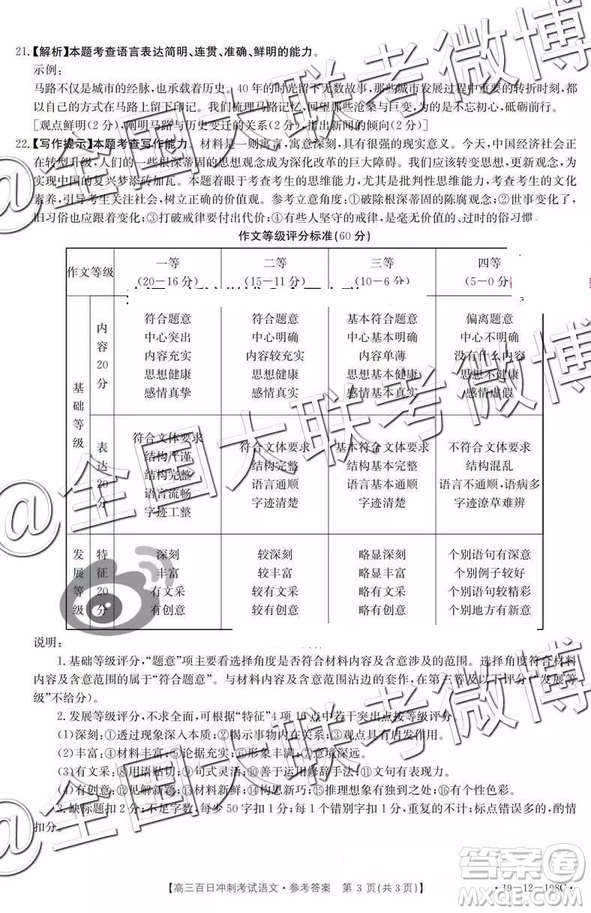 21.【解析】本题考查语言表达简明、连贯、准确、鲜明的能力。
示例:
马路不仅是城市的经脉,也承载着历史。40年的时光留下无数故事,那些城市发展中重要的转折时刻,都
以自己的方式在马路上留下印记。我们梳理马路记忆,回望城市的沧桑与巨变,为的是不忘初心,砥砺前行。
[观点鲜明(2分),阐明马路与历史变迁的关系(2分),指出新闻的倾向(2分)]
22.【写作提示】本题考查写作能力。材料是一则寓言,寓意深刻,具有很强的现实意义。今天,中国经济社会正
在转型升级,一些根深蒂固的思想观念成为深化改革的巨大障碍。我们应该转变思想,更新观念,为实现
中国的复兴梦添砖加瓦。本题着眼于考查考生的思维能力,尤其是批判性思维能力。考查考生的文化素
养,引导考生关注社会,树立正确的价值观。参考立意:①根除根深蒂固的陈腐观念;②打破思维惯性;③有些
旧习俗也应当改变;③打破戒律要付出代价;④有些人坚守的戒律,是过时的俗习惯……
作文等级评分标准(60分)
作文等级
一等
(20—16分)
二等
(15—11分)
三等
(10—6分)
四等
(5—0分)
基础等级
内容20分
符合题意
中心突出
内容充实
思想健康
感情真挚
符合题意
中心明确
内容充实
思想健康
感情真实
基本符合题意
中心基本明确
内容单薄
思想基本健康
感情基本真实
偏离题意
中心不明确
内容不当
思想不健康
感情虚假
表达20分
符合文体要求
结构严谨
语言流畅
字迹工整
符合文体要求
结构完整
语言通顺
字迹清楚
基本符合文体要求
结构基本完整
语言基本通顺
字迹基本清楚
不符合文体要求
结构混乱
语言不通顺
字迹潦草难辨
发展等级
特征20分
深刻
丰富
有文采
有创意
较深刻
较丰富
较有文采
较有创意
略显深刻
略显丰富
略显文采
略显创意
个别语句有深意
个别例子较好
个别语句较精彩
个别地方有创意
说明:
1.基础等级评分,“题意”项主要看选择角度是否符合材料内容及含意涉及的范围。选择角度符合材料内
容及含意范围的都属于“符合题意”。在第三等以下评分(含第三等)时,
2.发展等级评分,不求全面,可根据“特征”4项16点中若干突出点按等级评分。
(1)深刻:①透过现象深入本质②揭示事物内在的关系③观点具有启发作用。
(2)丰富:④材料丰富⑤论据充实⑥形象丰满⑦意境深远。
(3)有文采:⑧用语贴切⑨句式灵活⑩善于运用修辞手法⑪文句有表现力。
(4)有创意:⑫见解新颖⑬⑯有个性色彩。
3.缺标题扣2分;不足字数,每少50字扣1分;每1个错别字扣1分,重复的不计;标点错误多的,酌情
扣分。
【高三百日冲刺考试语文·参考答案 第3页(共3页)】
·19-12-198C·
@全国大联考微博
@全国大联考微博